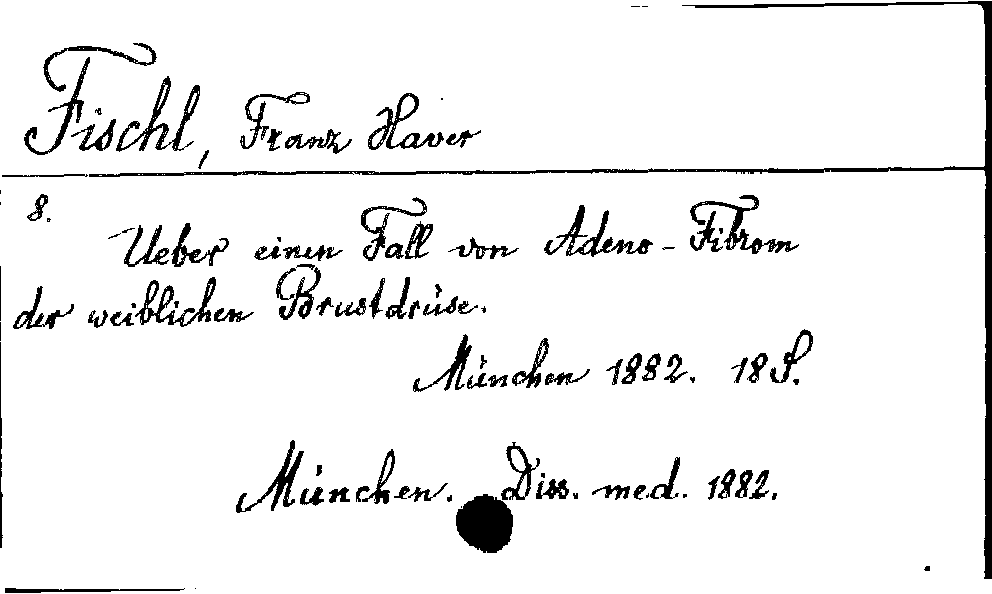 Fischl, Franz Xaver
8.
Ueber einen Fall von Adeno-Fibrom
der weiblichen Brustdrüse.
München 1882. 18 S.
München. Diss. med. 1882.